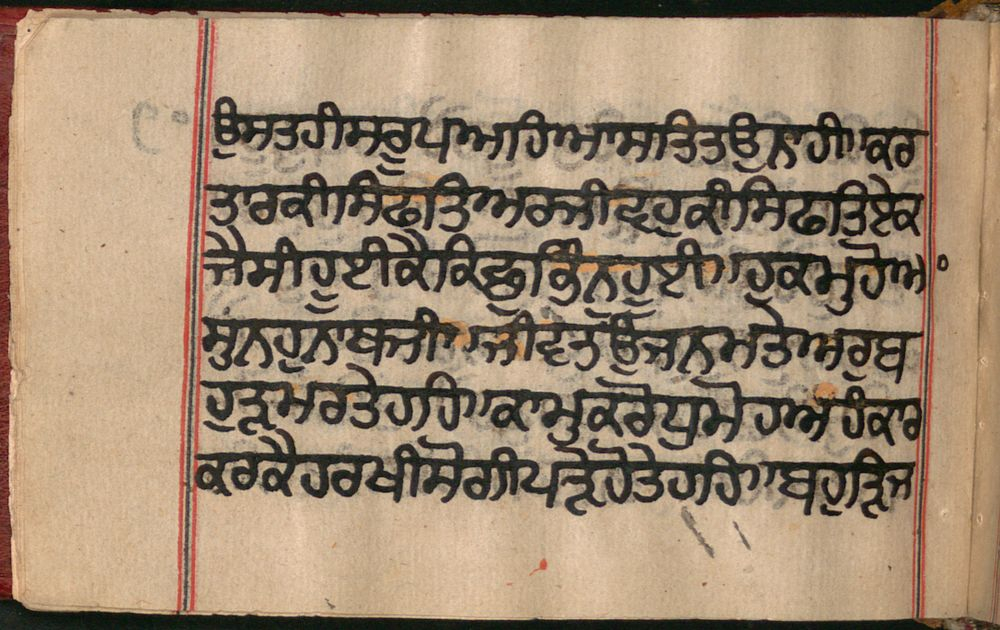 ਉਸਤਹੀਸਰੂਪਅਹਿਆਸਤਿਤਉਨਾਹੀ॥ਕਰ
ਤਾਰਕੀਸਿਫਤਿਅਰਜੀਵਹੁਕੀਸਿਫਤਿਏਕ
ਜੈਸੀਹੂਈਕੈਕਿਛੁਭਿੰਨਹੂਈ॥ਹੁਕਮੁਹੋਅ
ਸੁਨਹੁਨਾਬਜੀ॥ਜੀਵਤਉਜਨਮਤੇਅਰੁਬ
ਹੁੜੂਮਰਤੇਹਹਿ॥ਕਾਮੁਕਰੋਧੁਮੋਹਅਹੰਕਾਰ
ਕਰਕੈਹਰਖੀਸੋਗੀਪੜੇਹੋਤੇਹਹਿ॥ਬਹੁੜਿਜ